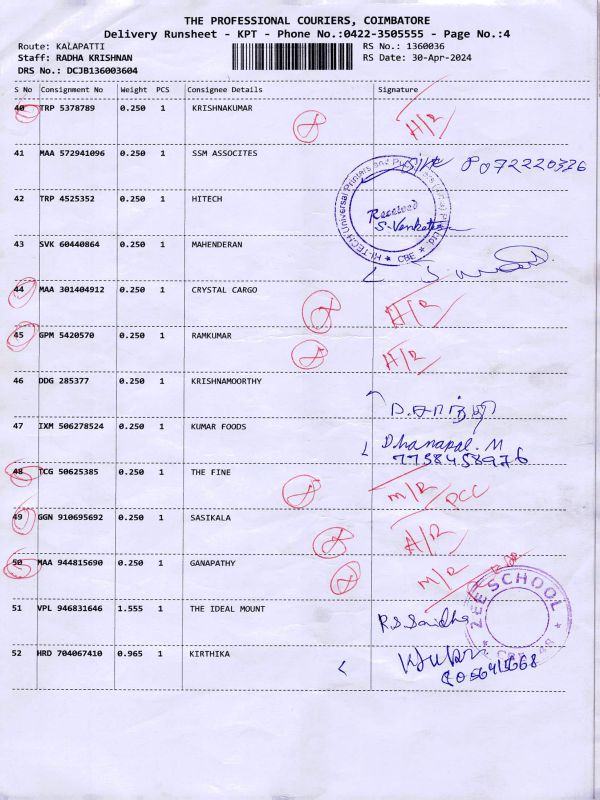 THE PROFESSIONAL COURIERS, COIMBATORE
Delivery Runsheet - KPT - Phone No.:0422-3505555 - Page No.:4
Route: KALAPATTI RS No.: 1360036
Staff: RADHA KRISHNAN RS Date: 30-Apr-2024
DRS No.: DCJB136003604
S No Consignment No Weight PCS Consignee Details Signature
40 TRP 5378789 0.250 1 KRISHNAKUMAR
H/R
41 MAA 572941096 0.250 1 SSM ASSOCITES
42 TRP 4525352 0.250 1 HITECH
Received
S. Venkates
43 SVK 60440864 0.250 1 MAHENDERAN
CBE
44 MAA 301404912 0.250 1 CRYSTAL CARGO
H/R
45 GPM 5420570 0.250 1 RAMKUMAR
H/R
46 DDG 285377 0.250 1 KRISHNAMOORTHY
47 IXM 506278524 0.250 1 KUMAR FOODS
Dhanapal. M
7758458976
48 TCG 50625385 0.250 1 THE FINE
M/R PCC
49 GGN 910695692 0.250 1 SASIKALA
H/R
50 MAA 944815690 0.250 1 GANAPATHY
M/R
51 VPL 946831646 1.555 1 THE IDEAL MOUNT
ZEE SCHOOL
52 HRD 704067410 0.965 1 KIRTHIKA